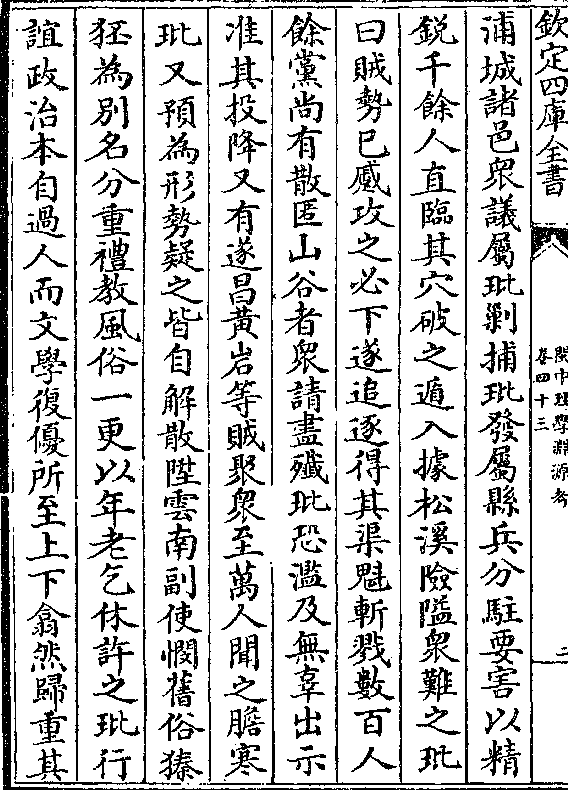 欽定四庫全書
閩中理學淵源考
卷四十三
浦城諸邑衆議屬玭剿捕玭發屬縣兵分駐要害以精
鋭千餘人直臨其穴破之遁入據松溪險隘衆難之玭
曰賊勢已蹙攻之必下遂追逐得其渠魁斬戮數百人
餘黨尚有散匿山谷者衆請盡殱玭恐濫及無辜出示
准其投降又有遂昌黄岩等賊聚衆至萬人聞之膽寒
玭又預為形勢疑之皆自解散陞雲南副使憫舊俗獉
狉為別名分重禮教風俗一更以年老乞休許之玭行
誼政治本自過人而文學復優所至上下翕然歸重其